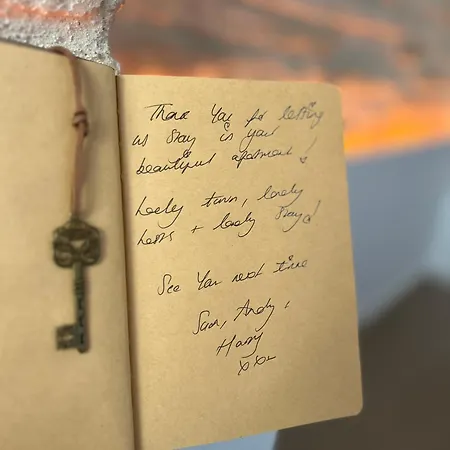 Thank You for letting
us stay in your
beautiful apartment!
Lovely town, lovely
hosts + lovely stay!
See You next time
Sam, Andy,
Harry
xxx